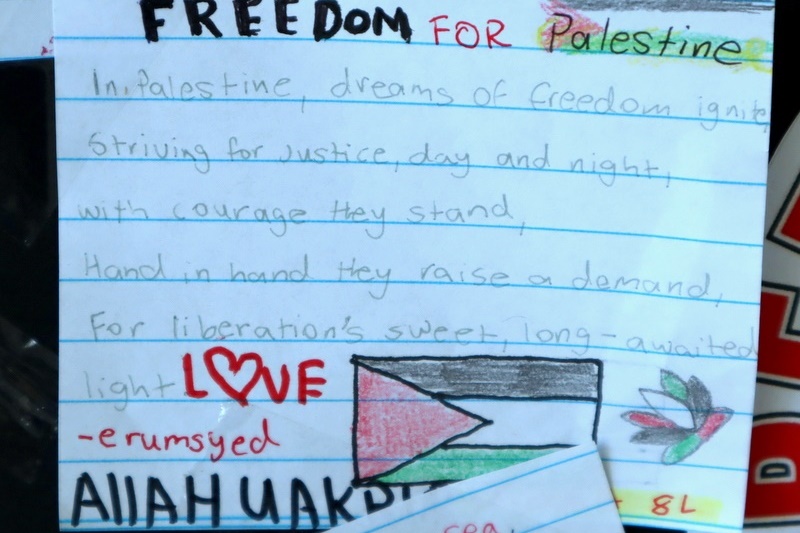 FREEDOM FOR Palestine
In Palestine, dreams of freedom ignite,
Striving for justice, day and night,
with courage they stand,
Hand in hand they raise a demand,
For liberation's sweet, long-awaited
light LOVE
-erumsyed
AllAH UAKB
8L
sea.
D